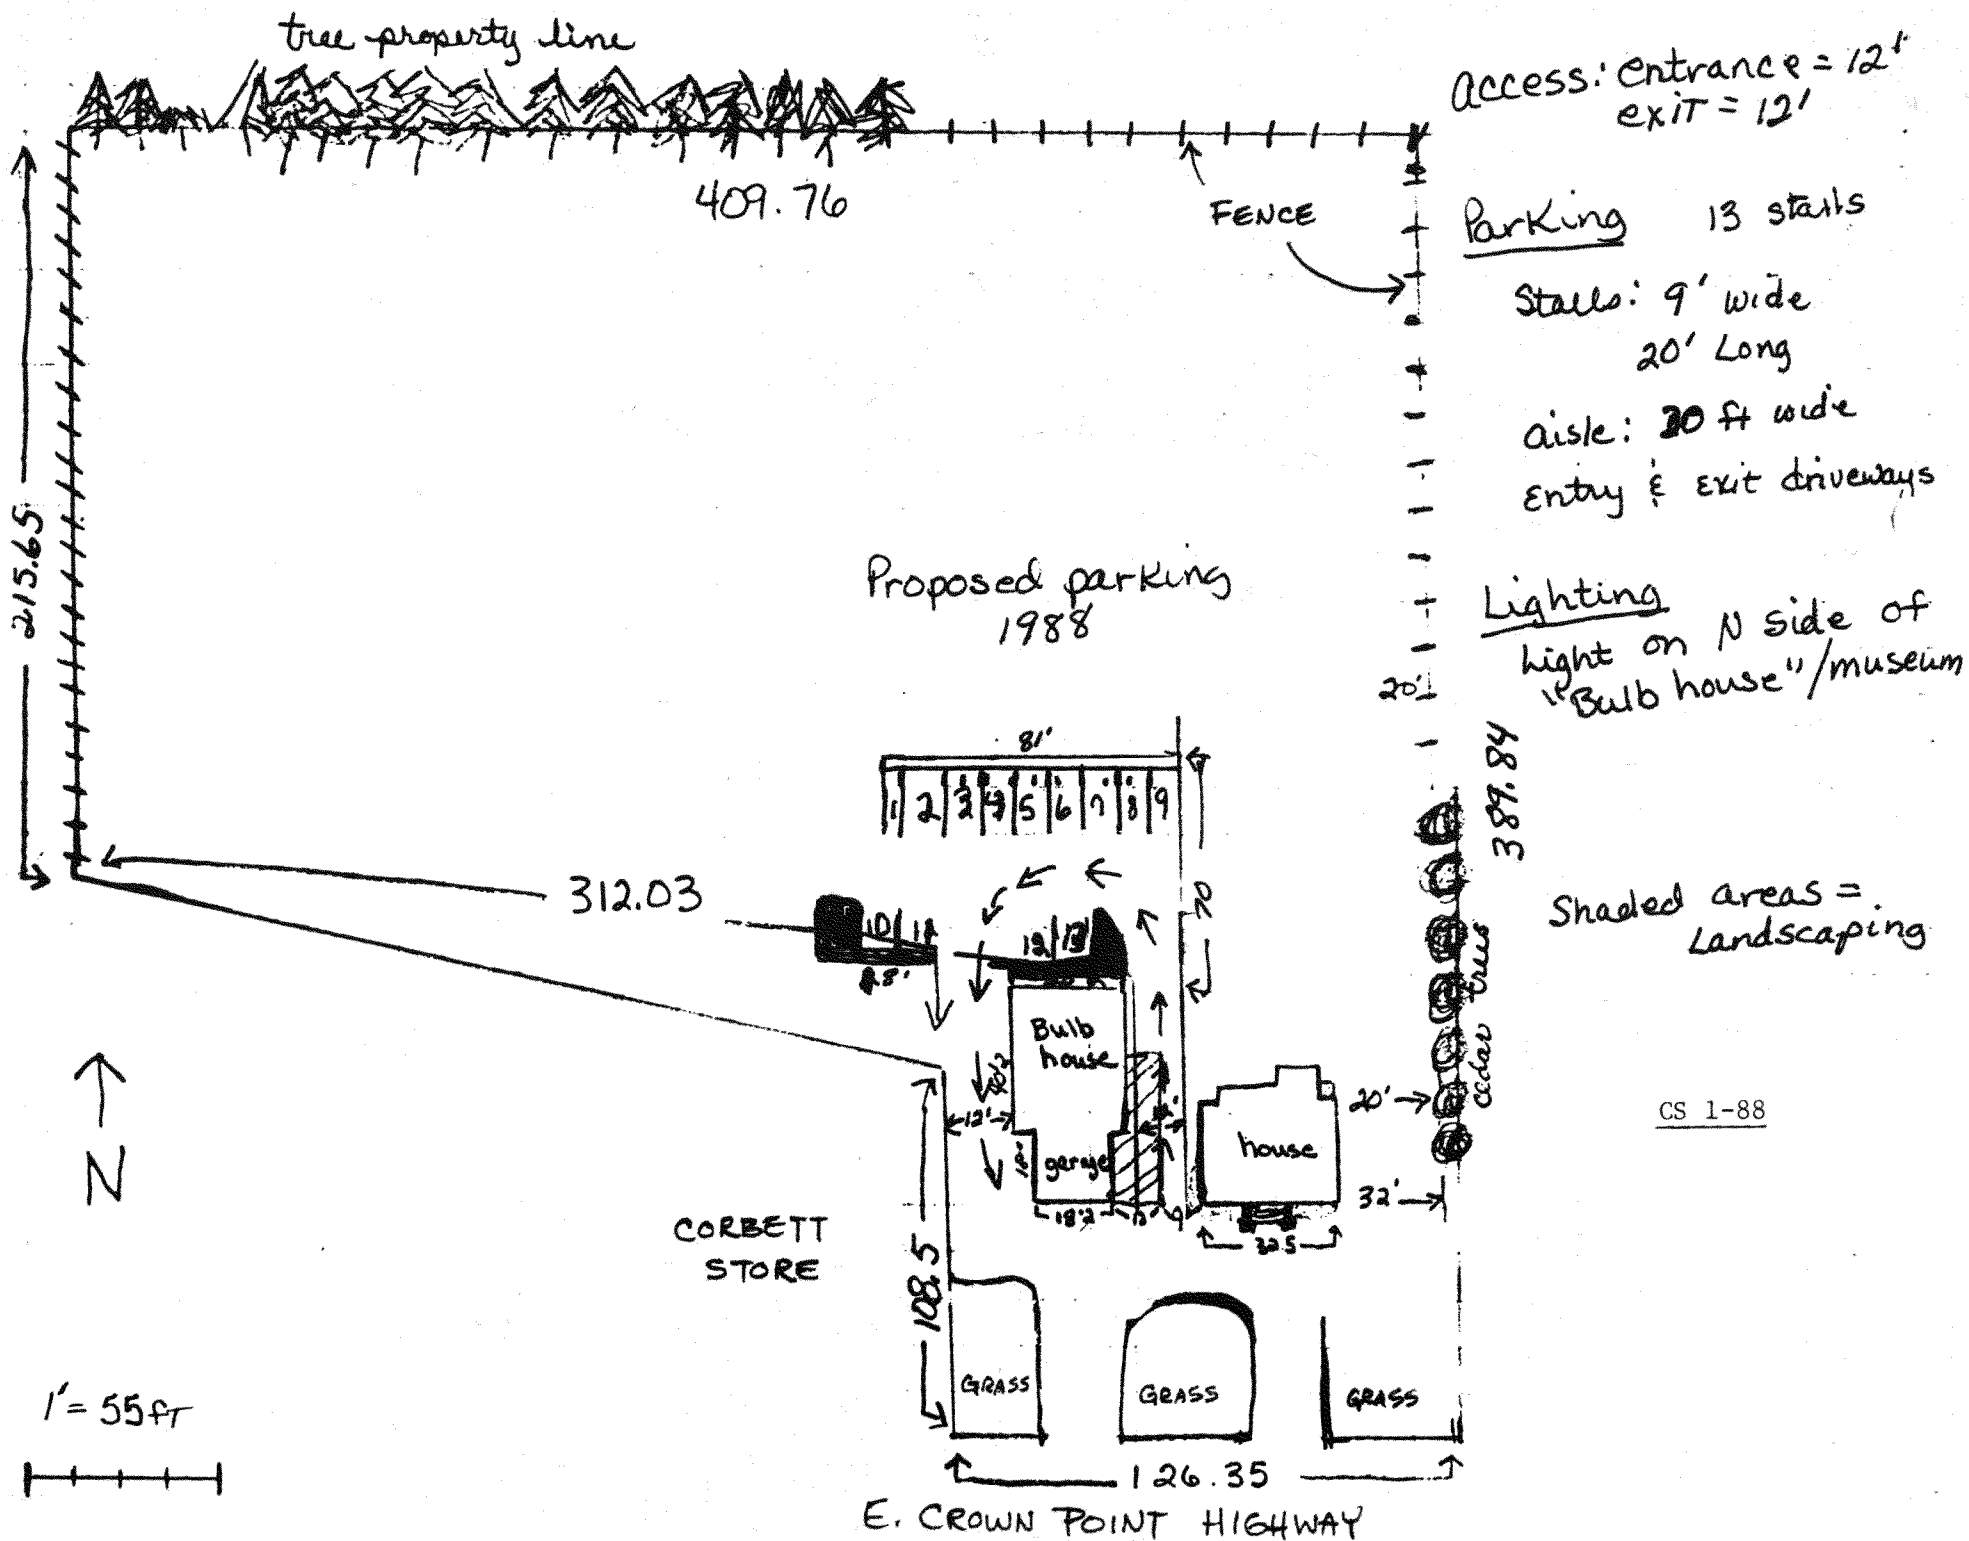 tree property line
Access: entrance = 12'
exit = 12'
409.76
FENCE
Parking 13 stalls
Stalls: 9' wide
20' Long
aisle: 20 ft wide
Entry & Exit driveways
215.65
Proposed parking
1988
Lighting
Light on N side of
"Bulb house"/museum
20'
389.84
81'
1 2 3 4 5 6 7 8 9
70
312.03
10 11
12 13
28'
Shaded areas =
Landscaping
cedar trees
Bulb
house
12'
garage
18'
18'2
house
20'
32'
32.5
CS 1-88
N
CORBETT
STORE
108.5
GRASS
GRASS
GRASS
1' = 55 fT
126.35
E. CROWN POINT HIGHWAY